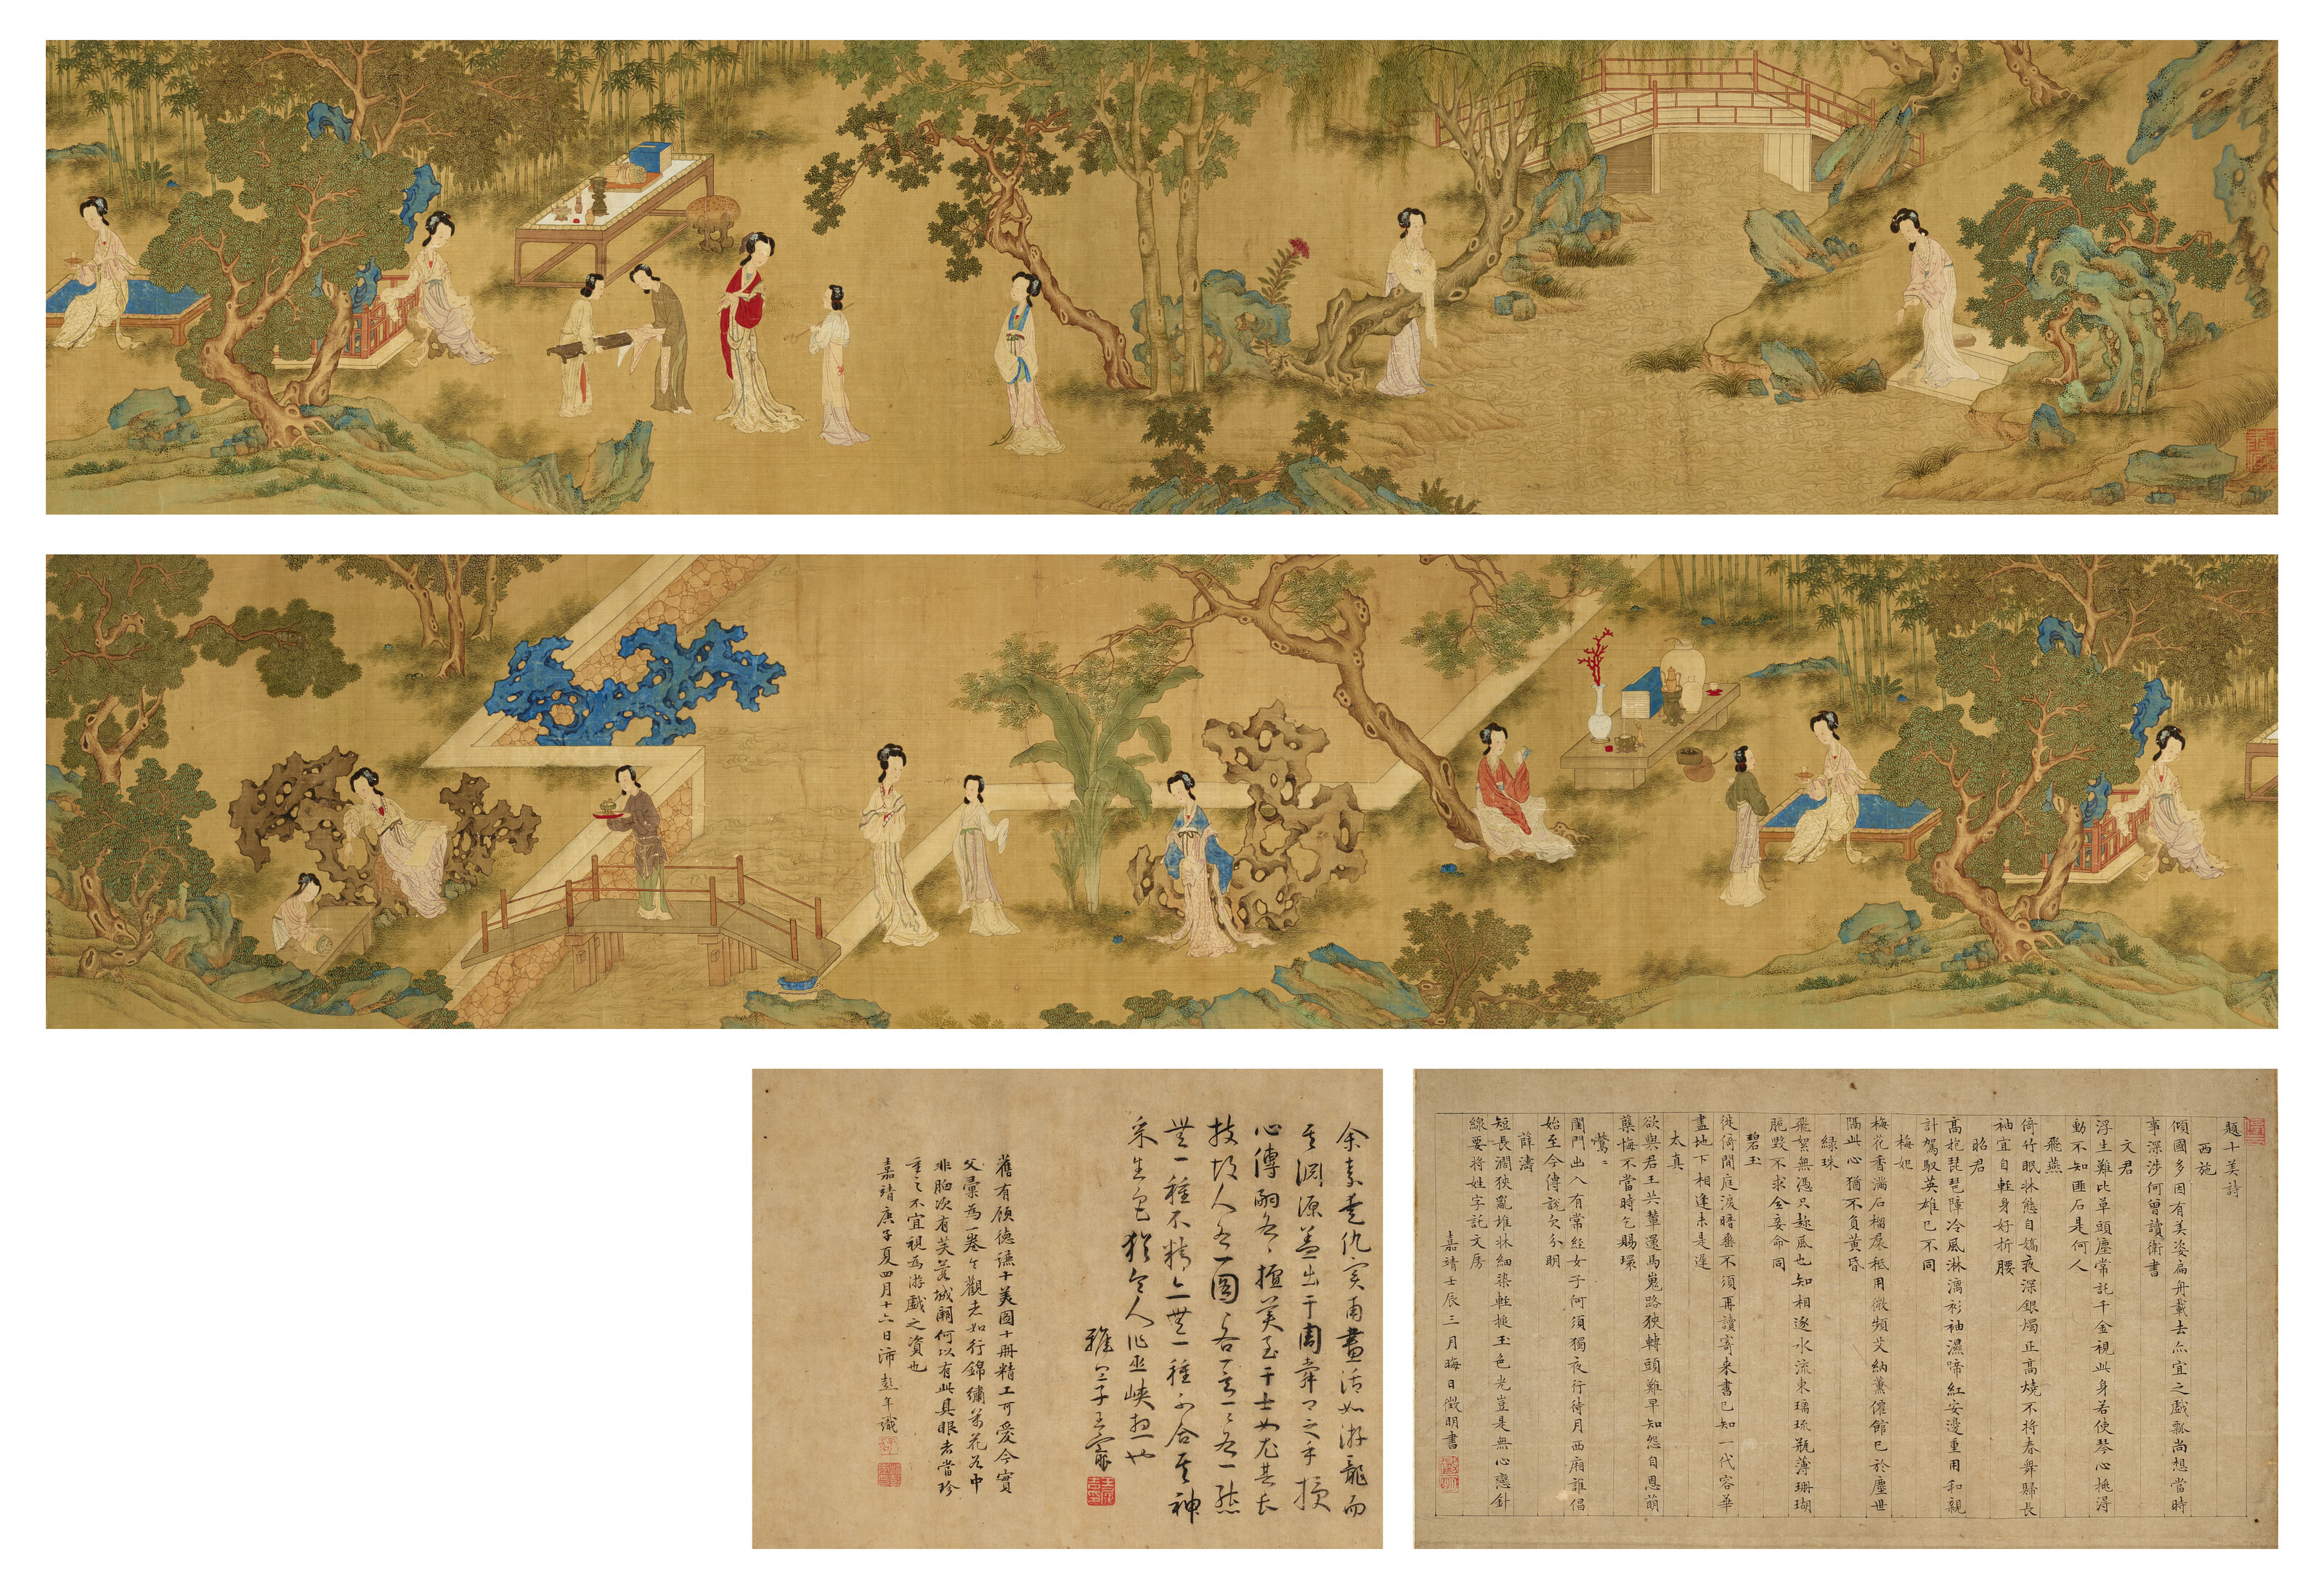 題十美詩
西施
傾國多因有美姿扁舟載去亦宜之戲瓢尚想當時
事深涉何曾讀衛書
文君
浮生難比草頭塵常託千金視此身若使琴心挑得
動不知匪石是何人
飛燕
倚竹眠牀態自嬌夜深銀燭正高燒不將春舞歸長
袖宜自輕身好折腰
昭君
高抱琵琶障冷風淋漓衫袖濕啼紅安邊重用和親
計駕馭英雄已不同
梅妃
梅花香滿石榴裙秪用微頻艾納薰僊館已於塵世
隔此心猶不負黃昏
綠珠
飛絮無憑只趂風也知相逐水流東璚琉瓶薄珊瑚
脆毀不求全妾命同
碧玉
徙倚閒庭淚暗垂不須再讀寄來書已知一代容華
盡地下相逢未是遲
太真
欲與君王共輦還馬嵬路狹轉頭難早知怨自恩萌
蘖悔不當時乞賜環
鶯〻
閨門出入有常經女子何須獨夜行待月西廂誰倡
始至今傳說欠分明
薛濤
短長澗狹亂堆牀細染輕搥玉色光豈是無心戀針
線要將姓字託文房
嘉靖壬辰三月晦日徵明書
余素愛仇實甫畫活如游龍而
其淵源蓋出于周舜卿之手授
心傳嗣各〻擅美至于士女尤其長
技故人各一圖各一態
無一種不精亦無一種不合其神
采生色猶令人作巫峽想也
雅宜子王寵
舊有顧德謙十美圖十冊精工可愛今實
父彙為一卷令觀者如行錦繡萬花谷中
非胸次有芙蓉城闕何以有此具眼者當珍
重之不宜視為游戲之資也
嘉靖庚子夏四月十六日沛彭年識